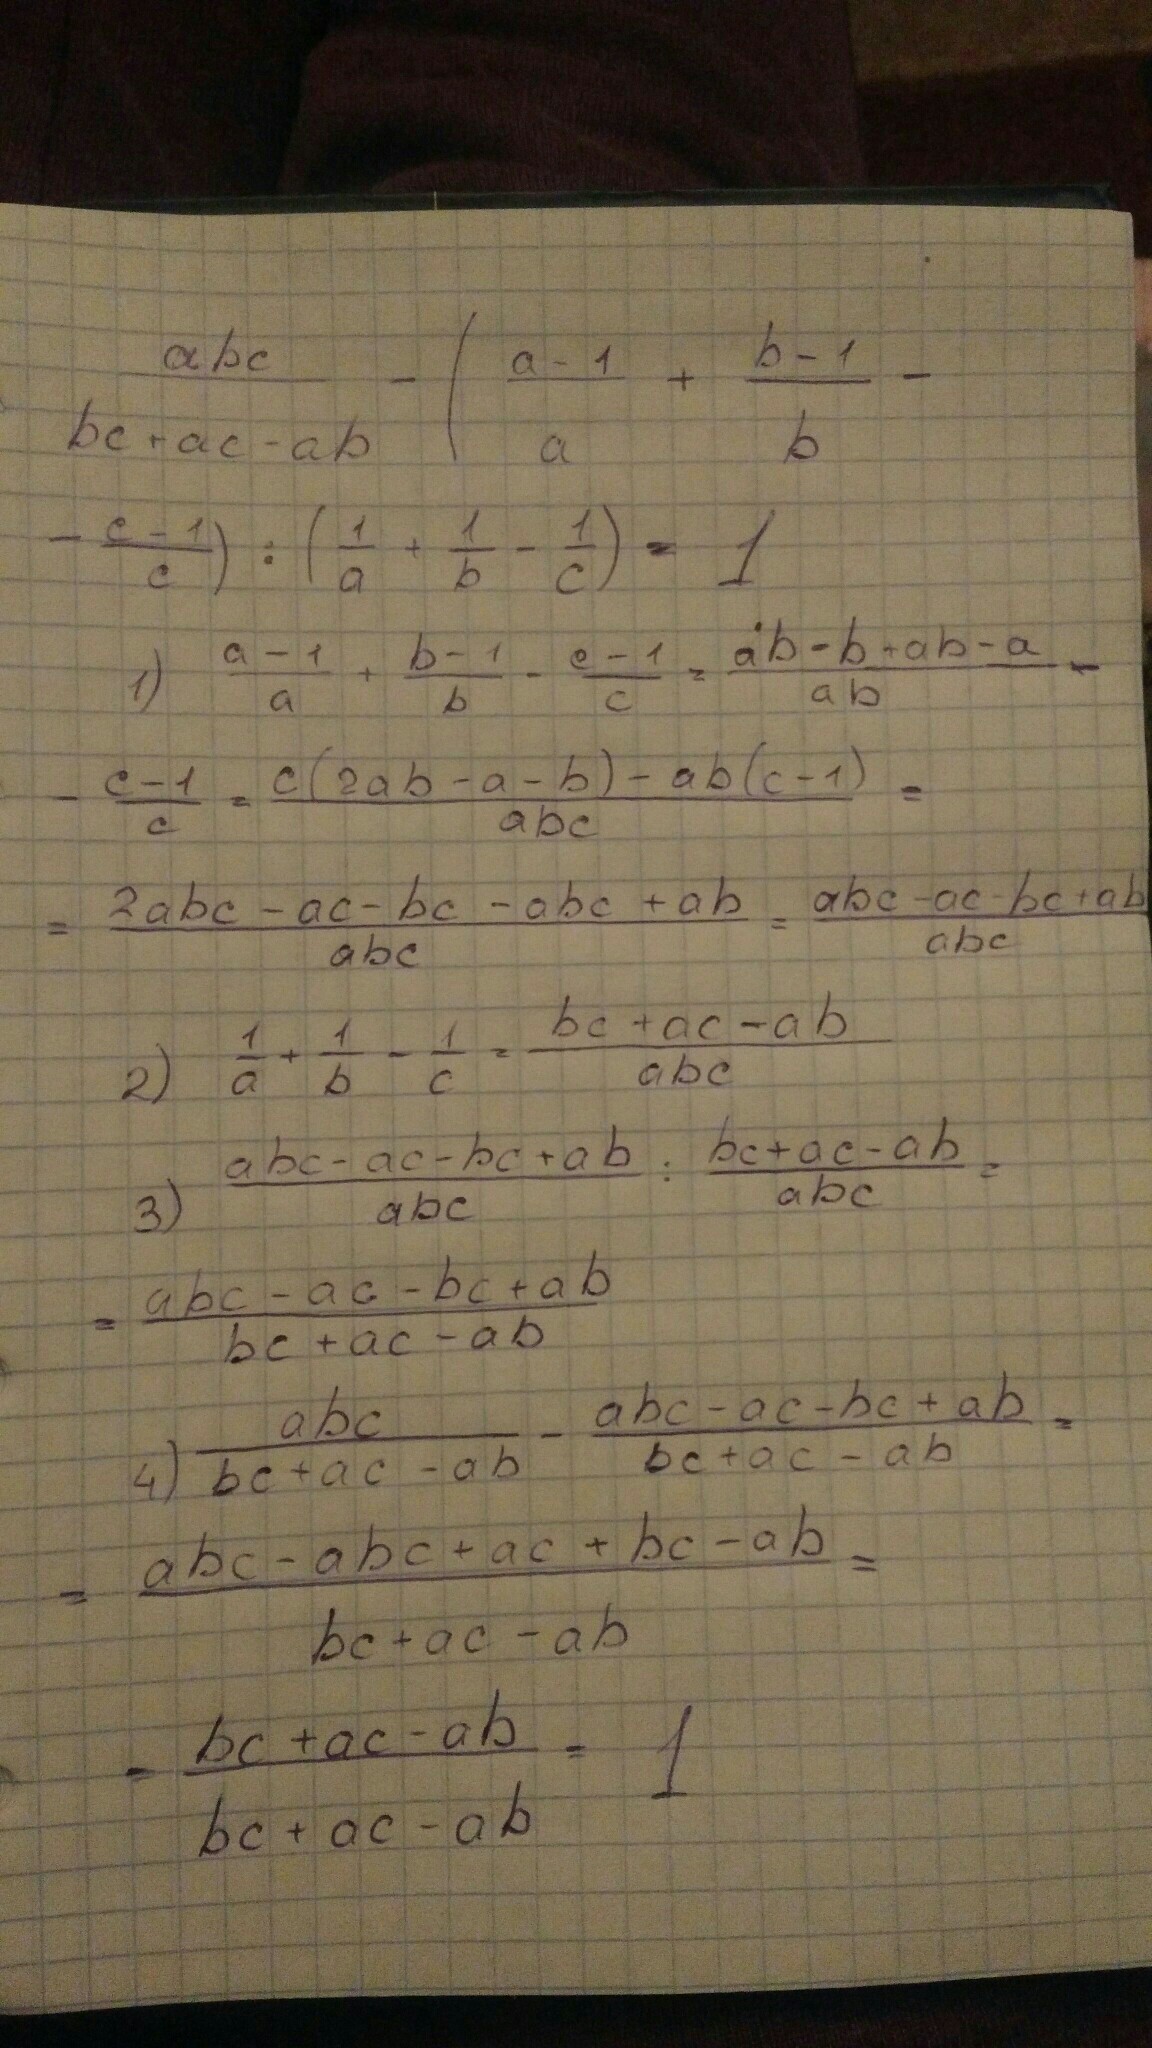 abc/(bc+ac-ab) - ( (a-1)/a + (b-1)/b -
- (c-1)/c ) : ( 1/a + 1/b - 1/c ) = 1
1) (a-1)/a + (b-1)/b - (c-1)/c = (ab-b+ab-a)/(ab) -
- (c-1)/c = (c(2ab-a-b)-ab(c-1))/(abc) =
= (2abc-ac-bc-abc+ab)/(abc) = (abc-ac-bc+ab)/(abc)
2) 1/a + 1/b - 1/c = (bc+ac-ab)/(abc)
3) (abc-ac-bc+ab)/(abc) : (bc+ac-ab)/(abc) =
= (abc-ac-bc+ab)/(bc+ac-ab)
4) abc/(bc+ac-ab) - (abc-ac-bc+ab)/(bc+ac-ab) =
= (abc-abc+ac+bc-ab)/(bc+ac-ab) =
= (bc+ac-ab)/(bc+ac-ab) = 1